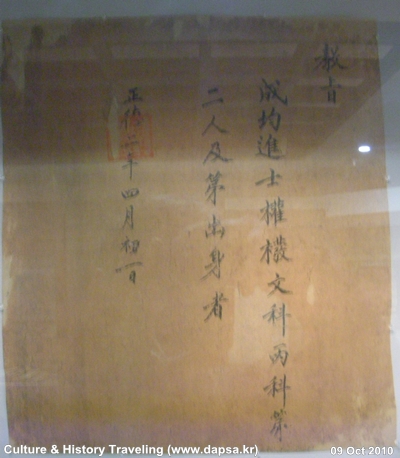 教旨
成均進士權橃文科丙科第
二人及第出身者
正德二年四月初一日
Culture & History Traveling (www.dapsa.kr)
09 Oct 2010